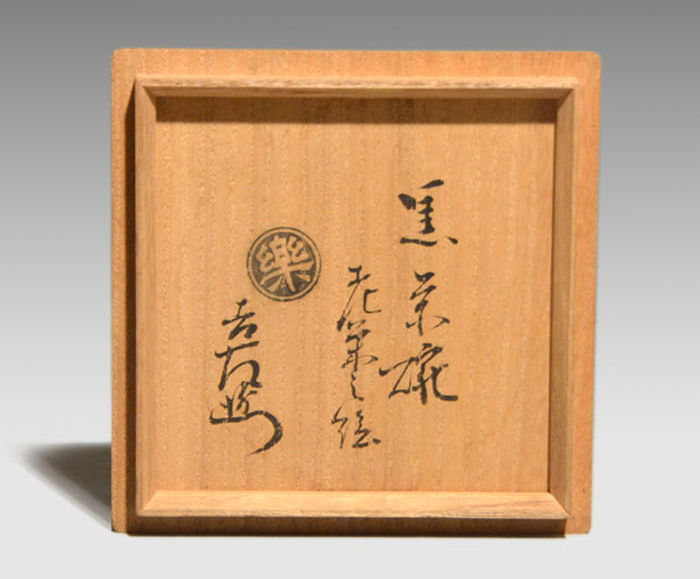 黒茶碗
之絵
樂
吉左衛門